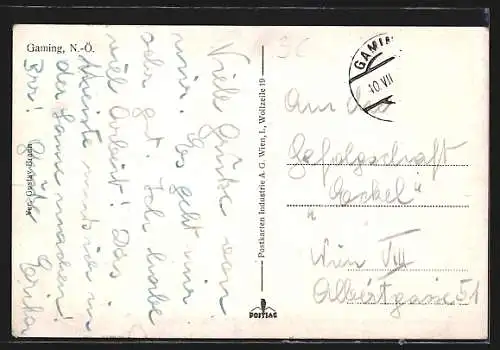 Gaming, N.-Ö.
Viele Grüße von
mir. Es geht mir
sehr gut. Ich habe
viel Arbeit! Das
meiste muß ich in
der Sonne machen!
Brr! Grüße Erika
Postkarten Industrie A. G. Wien, I., Wollzeile 19
POSTIAG
GAMIN
10.VII
An die
Gefolgschaft
"Gockel"
Wien VIII
Albertgasse 51